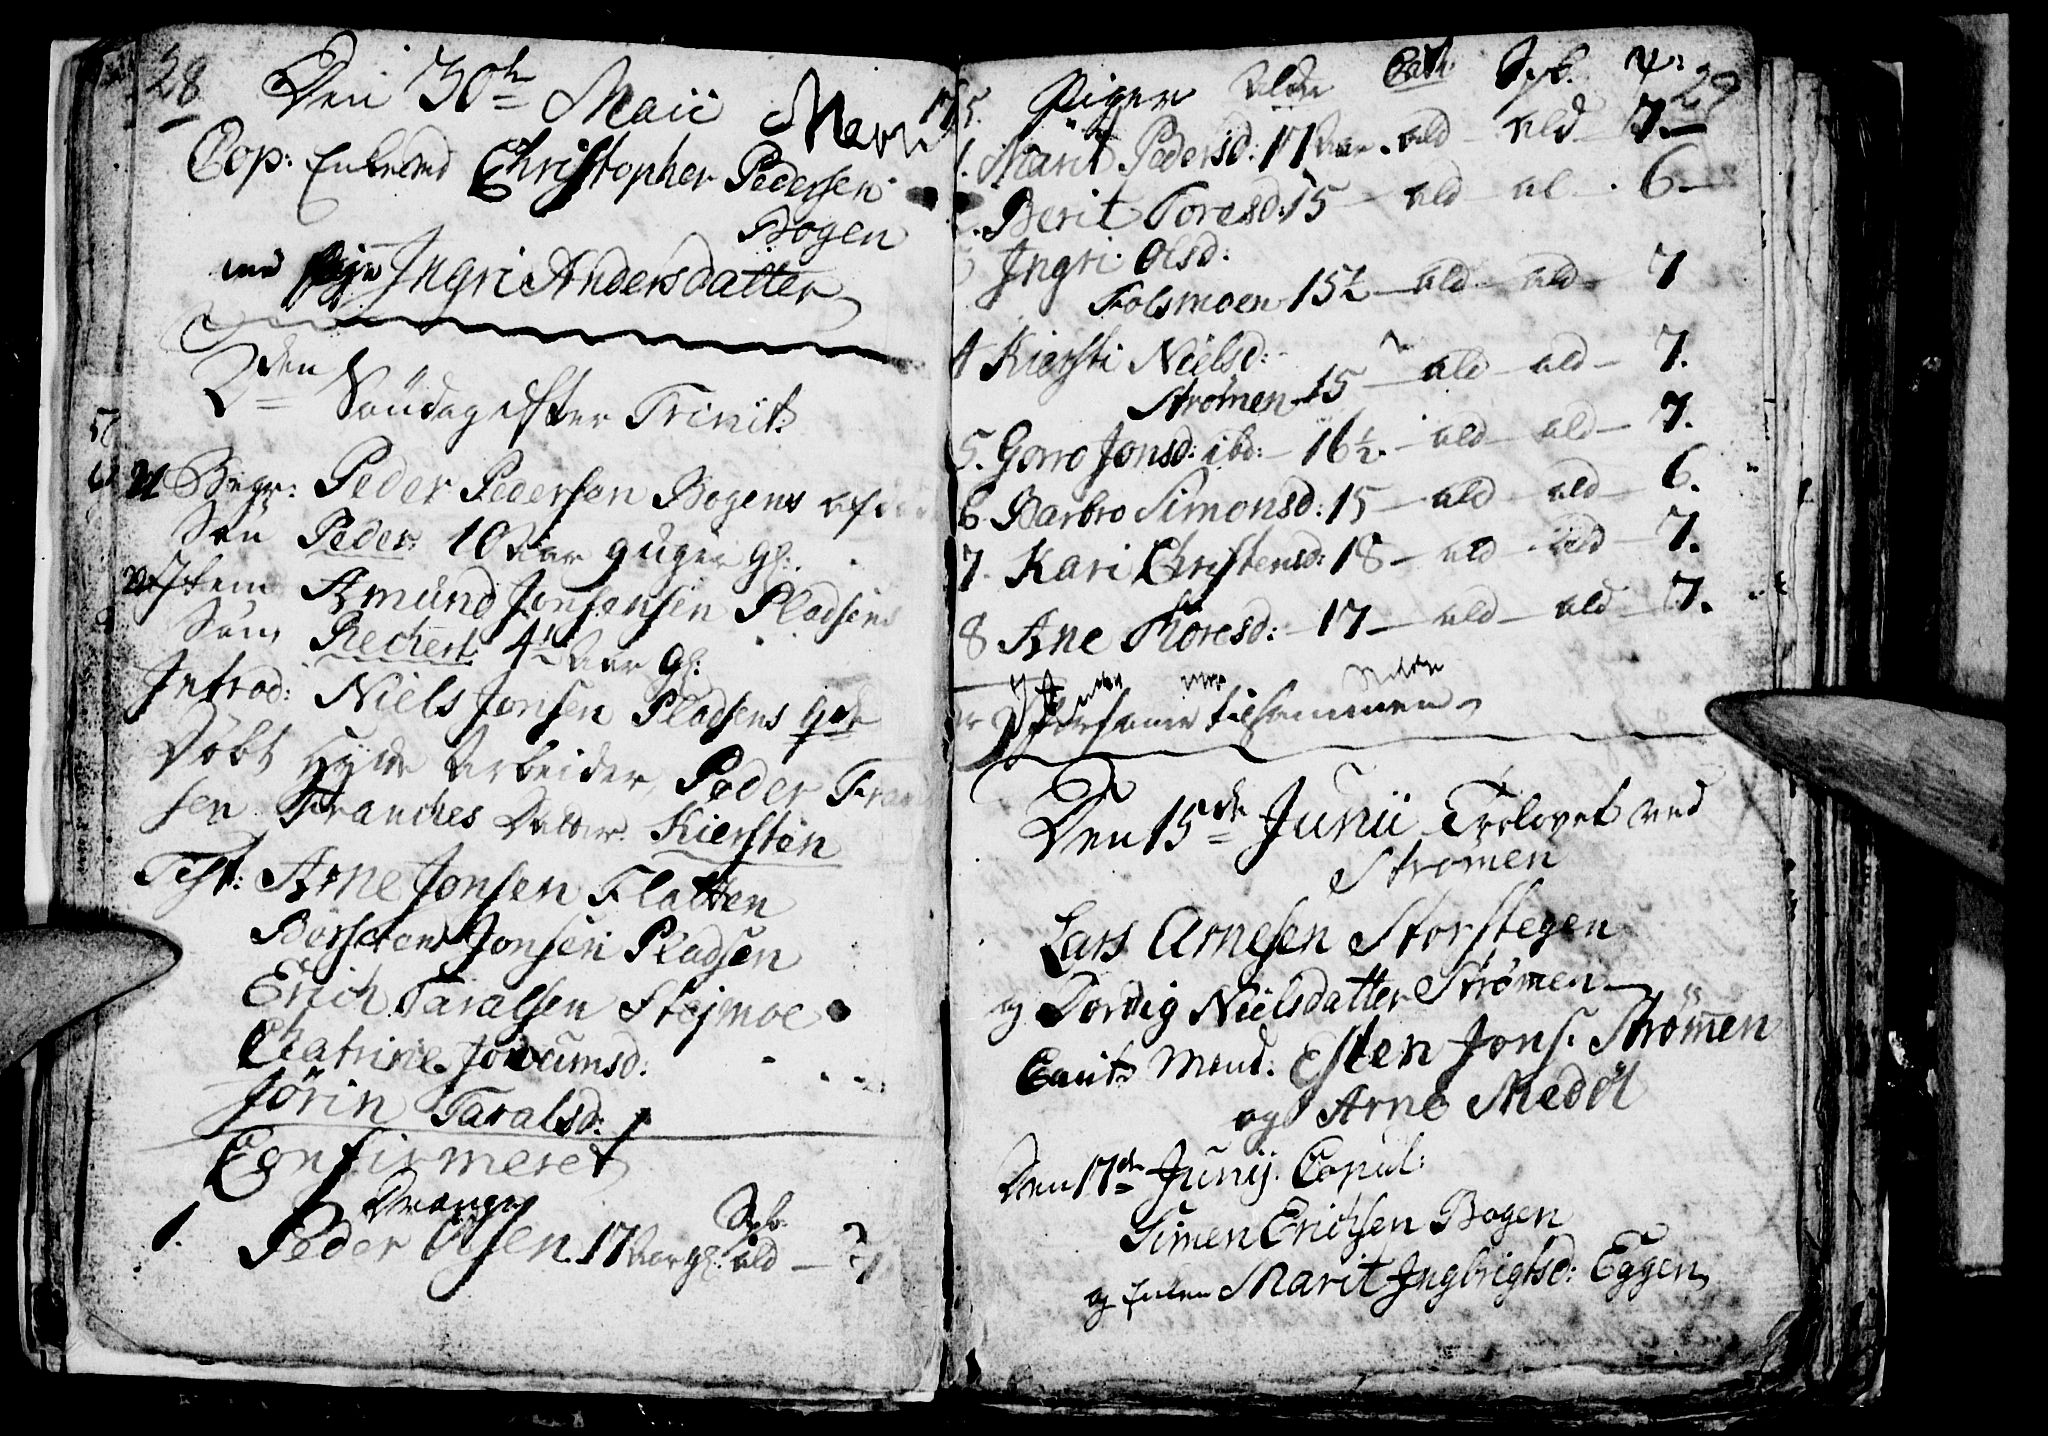 28
Den 30te Maii
Cop: Enkemd Christopher Pedersen
Bogen
med Pige Ingri Andersdatter
2den Söndag efter Trinit:
Begr: Peder Pedersen Bogens
Sön Peder 10 Aar 9 uger gl:
Item Amund Jonsensen Pladsens
Sön Rechert 4 1/2 Aar gl:
Introd: Niels Jonsen Pladsens qde
Döbt Hytte Arbeider Peder Fran
sen Franches Datter Kiersten
Test: Arne Jonsen Flatten
Borsten Jonsen Pladsen
Erich Taralsen Stejmoe
Chatrine Jocumsd:
Jörin Taralsd:
Confirmeret
Drenge
1. Peder Olsen 17 Aar gl: ald —
29
Piger Alder
1. Marit Pedersd: 17 Aar. ald — ald — 7. —
2. Berit Toresd: 15 — ald — al — 6 —
Ingri Olsd:
Folsmoen 15 1/2 — ald — ald — 7
4 Kiersti Nielsd:
Strömen 15 — ald — ald — 7.
5. Gorro Jonsd: ibd: — 16 1/2. — ald — ald — 7.
6 Barbro Simonsd: 15 — ald — ald — 6.
7. Kari Christensd: 18 — ald — ald — 7.
8 Ane Thoresd: — 17 — ald — ald — 7.
tilsammen
Den 15de Junii Trolovet ved
Strömen
Lars Arnesen Storstegen
og Dordig Nielsdatter Strömen
Cauts Mænd: Esten Jons. Strömmen
og Arne Medöl
Den 17de Junij. Copul:
Simen Erichsen Bogen
og Enken Marit Ingbrigtsd: Eggen